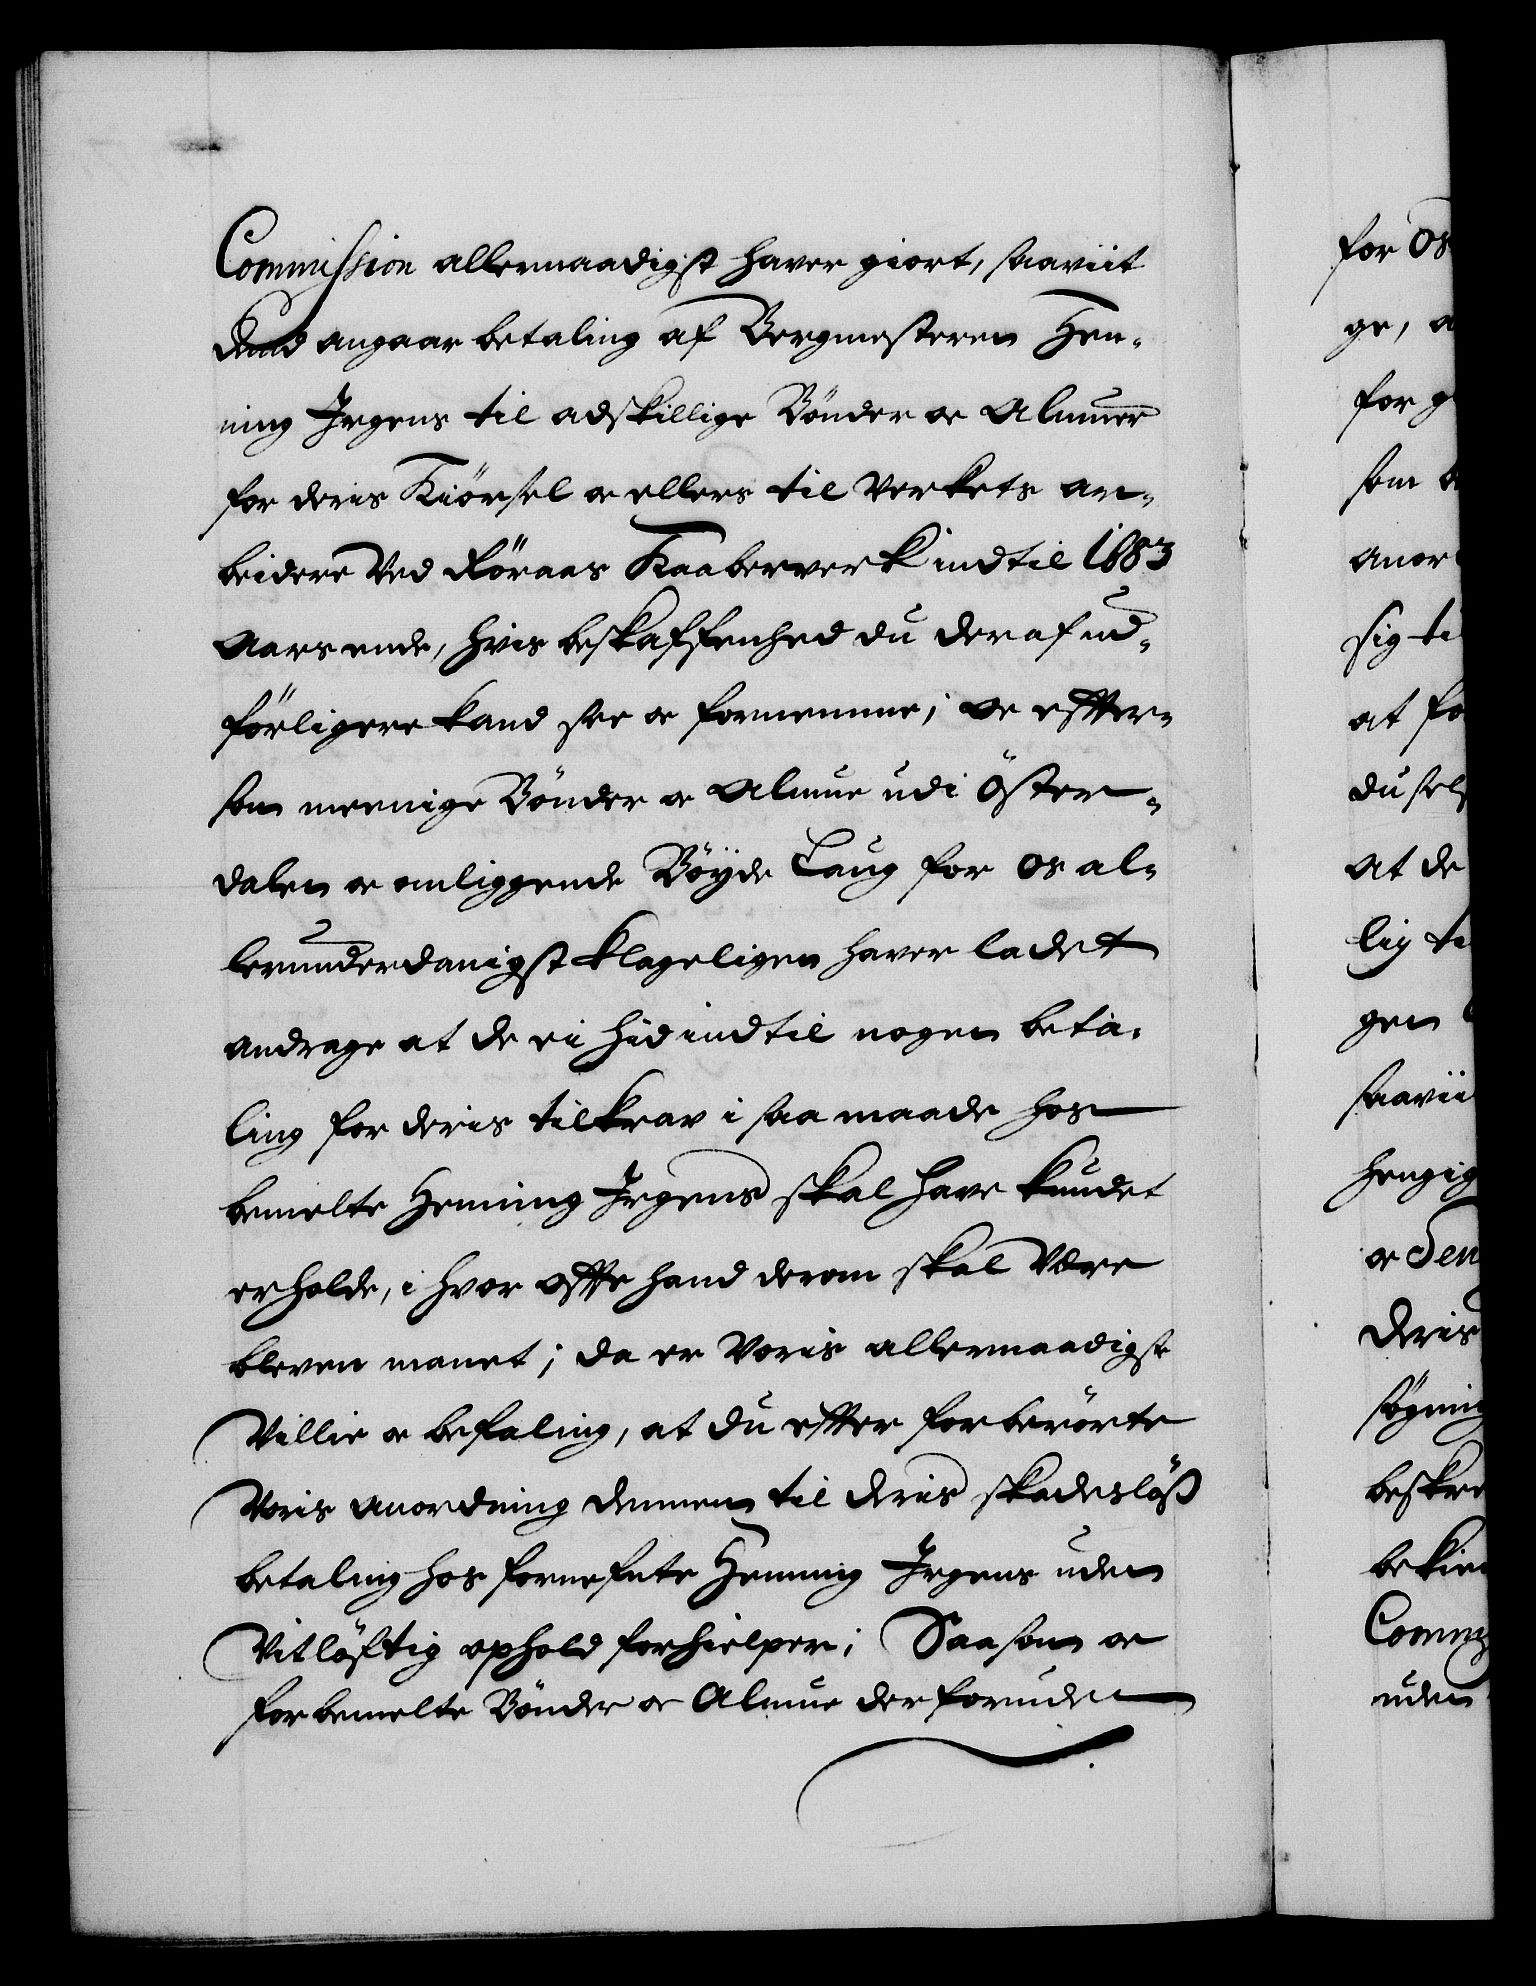 Commission allernaadigst haver giort, saaviit
dend angaar betaling af Bergmesteren Hen-
ning Irgens til adskillige Bönder oc Almuer
for deris Kiörsel oc ellers til Verkets ar-
beidere Ved Röraas Kaaberverk indtil 1683
Aars ende, hvis beskaffenhed du deraf ud-
förligere kand see oc fornemme; oc effter-
som meenige Bönder oc Almue udi Öster-
dalen oc omliggende Böyde Laug for os al-
lerunderdanigst klageligen haver ladet
andrage at de ei hid indtil nogen beta-
ling for deris tilkrav i saa maade hos
bemelte Henning Irgens skal have kundet
erholde, i hvor offte hand derom skal Vere
bleven manet; da er Voris allernaadigste
Villie oc befaling, at du effter forberörte
Voris anordning dennem til deris skadeslöß
betaling hos fornefnte Henning Irgens uden
Vitlöftig ophold forhielper; Saasom oc
forbemelte Bönder oc Almue der foruden
for os
ge, a
for g
som
anor
sig ti
at fo
du sel
at de
lig ti
gen
saavii
hengig
oc den
deris
sögning
beskre
bekien
Commi
uden